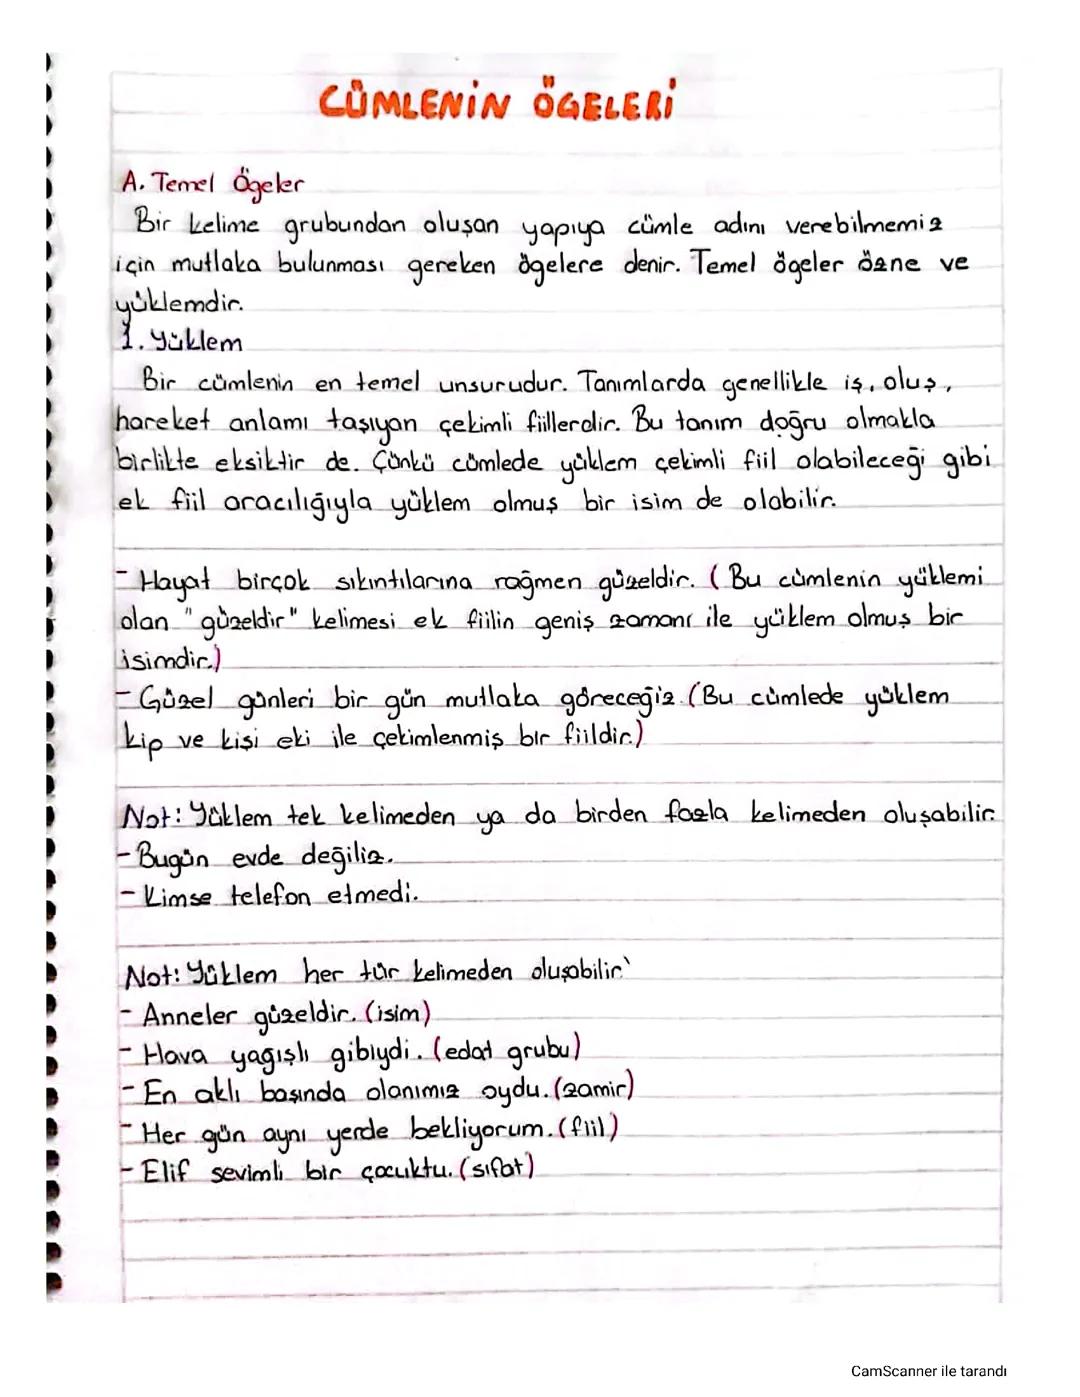 CÜMLENİN ÖGELERİ
A. Temel Ögeler
Bir kelime grubundan oluşan yapıya cümle adını verebilmemiz
için mutlaka bulunması gereken ögelere denir. Temel ögeler özne ve
yüklemdir.
1. Yüklem
Bir cümlenin en temel unsurudur. Tanımlarda genellikle iş, oluş,
hareket anlamı taşıyan çekimli fiillerdir. Bu tanım doğru olmakla
birlikte eksiktir de. Çünkü cümlede yüklem çekimli fiil olabileceği gibi
ek fiil aracılığıyla yüklem olmuş bir isim de olabilir.
- Hayat birçok sıkıntılarına rağmen güzeldir. (Bu cümlenin yüklemi
olan "güzeldir" kelimesi ek fiilin geniş zamanı ile yüklem olmuş bir
isimdir.)
- Güzel günleri bir gün mutlaka göreceğiz. (Bu cümlede yüklem
kip ve kişi eki ile çekimlenmiş bir fiildir.)
Not: Yüklem tek kelimeden ya da birden fazla kelimeden oluşabilir.
- Bugün evde değiliz.
- Kimse telefon etmedi.
Not: Yüklem her tür kelimeden oluşabilir.
- Anneler güzeldir. (isim)
- Hava yağışlı gibiydi. (edat grubu)
- En aklı başında olanımız oydu. (zamir)
- Her gün aynı yerde bekliyorum. (fiil)
- Elif sevimli bir çocuktu. (sıfat)
CamScanner ile tarandı